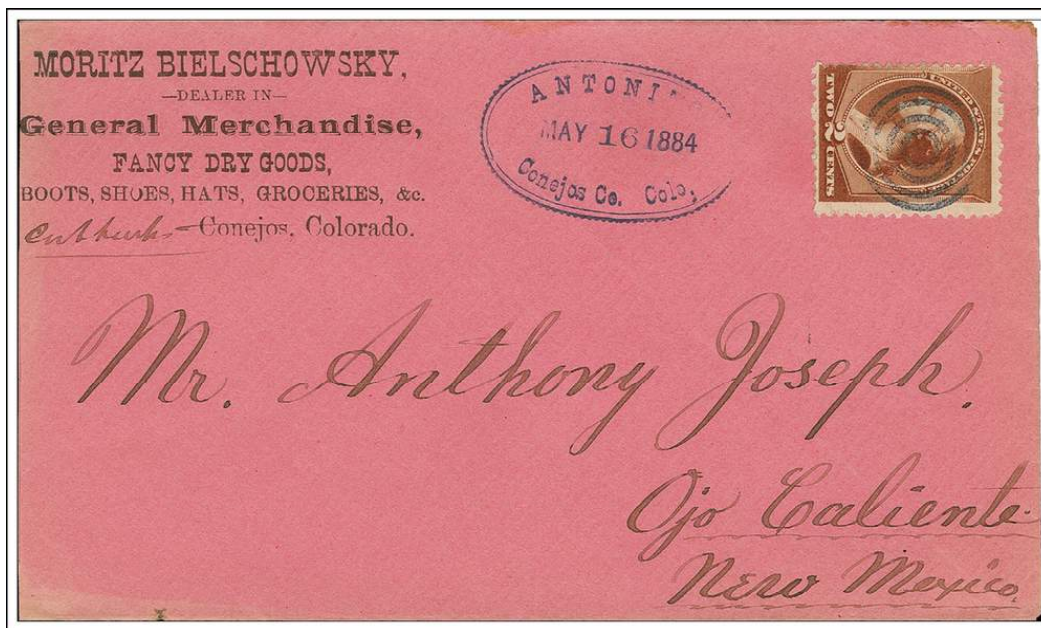 MORITZ BIELSCHOWSKY,
—DEALER IN—
General Merchandise,
FANCY DRY GOODS,
BOOTS, SHOES, HATS, GROCERIES, &c.
Conejos, Colorado.
ANTONI
MAY 16 1884
Conejos Co. Colo,
UNITED STATES POSTAGE
TWO 2 CENTS
Mr. Anthony Joseph.
Ojo Caliente
New Mexico.